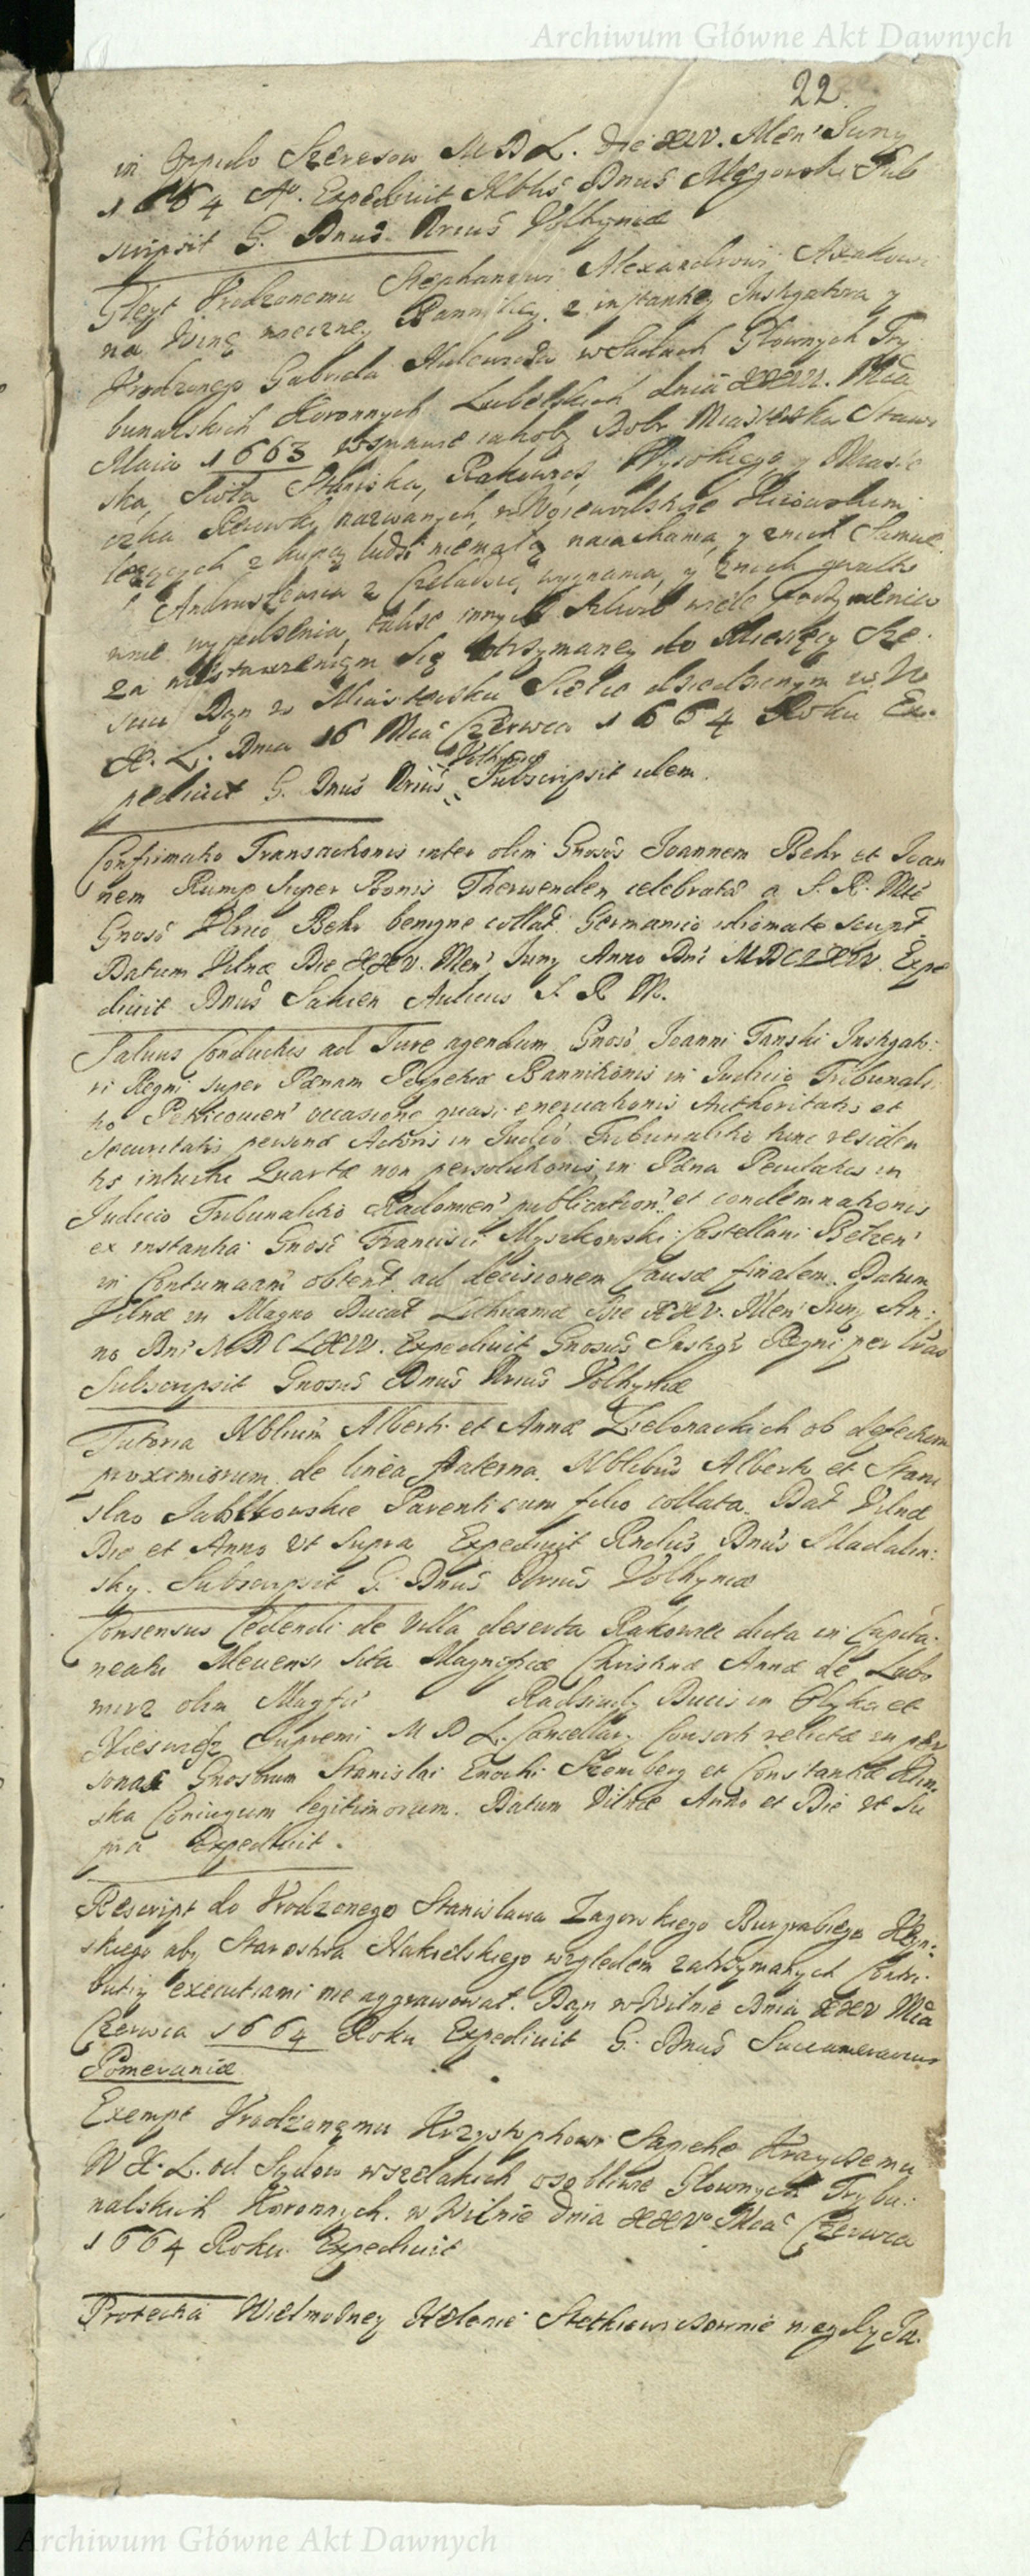 Archiwum Główne Akt Dawnych
22.
in Oppido Szereszow M D L. Die XIV. Men' Juny
1664 A°. Expedivit Nblis Dnus Sub
scripsit G. Dnus Vrius Volhyniæ
Gleyt Vrodzonemu Stephanowi Alexandrowi
na Winę wieczney Bannitiey z instantiey Instigatora y
Vrodzonego Gabriela w Sądach Głownych Try
bunalskich Koronnych Lubelskich dnia Mca
Maia 1663 wsprawie iakoby Dobr Miasteczka Staw
ska, Sioła Rakowiec, Wysokiego y Miaste
czka nazwanych, w Woiewodztwie Kiiowskim
leżących z kupą ludzi niemałą naiachania, y znich Samue
z Czeladzią wygnania, y znich gwałto
wnie wypędzenia, tudisz innych wiele
za niestawieniem się otrzymaney do Miesięcy Sze
sciu Dan w Miasteczku dziedzicznym w W
X. L. Dnia 16 Mca Czerwca 1664 Roku Ex-
Volhyniæ
pedivit G. Dnus Vrius Subscripsit idem.
Confirmatio Transactionis inter olim Gnosos Joannem Behr et Joan
nem Rump super Bonis Therwenden celebratæ a S. R. Mte
Gnoso Behr benigne collat. Germanico idiomate script.
Datum Vilnæ Die XXV. Men' Juny Anno Dni MDCLXIV. Expe
divit Dnus Aulicus S R M.
Salvus Conductus ad Jure agendum Gnoso Joanni Tanski Instigato:
ri Regni super Pænam Perpetuæ Bannitionis in Judicio Tribunali
tio Petricovien' occasione quasi enervationis Authoritatis et
securitatis personæ Actoris in Judio Tribunalitio tunc residen
tis intuitu Quartæ non persolutionis, in Pæna Peculatus in
Judicio Tribunalitio Radomien' publication. et condemnationis
ex instantia Gnosi Francisci Myszkowski Castellani Belzen'
in Contumatiam obtent. ad decisionem Causæ finalem. Datum
Vilnæ in Magno Ducat Lithuaniæ Die XXV. Men' Juny An:
no Dni MDCLXIV. Expedivit Gnosus Instigr Regni per lras
Subscripsit Gnosus Dnus Vrius Volhyniæ
Tutoria Nblium Alberti et Annæ Zielonackich ob defectum
proximiorum de linea paterna. Nblibus Alberto et Stani
slao Jabłkowskie Parenti cum filio collata. Dat Vilnæ
Die et Anno Vt supra Expedivit Rndus Dnus Madalin:
sky. Subscripsit G. Dnus Vrius Volhyniæ
Consensus Cedendi de Villa deserta Rakowiec dicta in Capita:
neatu Mevensi sita Magnificæ Christinæ Annæ de Lubo
mirz olim Magfci Radziwily Ducis in Olyka et
Nieswisz Supremi M D L. Cancellary Consorti relictæ in per
sonas Gnosorum Stanislai Enochi Szemberg et Constantiæ
ska Coniugum legitimorum. Datum Vilnæ Anno et Die Vt Su
pra Expedivit.
Rescript do Vrodzonego Stanislawa Zagorskiego Burgrabiego Kcyn:
skiego aby Starostwa Nakielskiego względem zatrzymanych Contri
butiy executiami nie aggrawował. Dan w Wilnie Dnia XXV Mca
Czerwca 1664 Roku Expedivit G. Dnus Succamerarius
Pomeraniæ
Exempt Vrodzonemu Krzysztophowi Sapieże Krayczemu
W X. L. od Sądow wszelakich osobliwie Głownych Trybu:
nalskich Koronnych. w Wilnie Dnia XXV° Mca Czerwca
1664 Roku. Expedivit
Protectia Wielmożney Helenie Stetkiewiczownie niegdy Ja.
Archiwum Główne Akt Dawnych